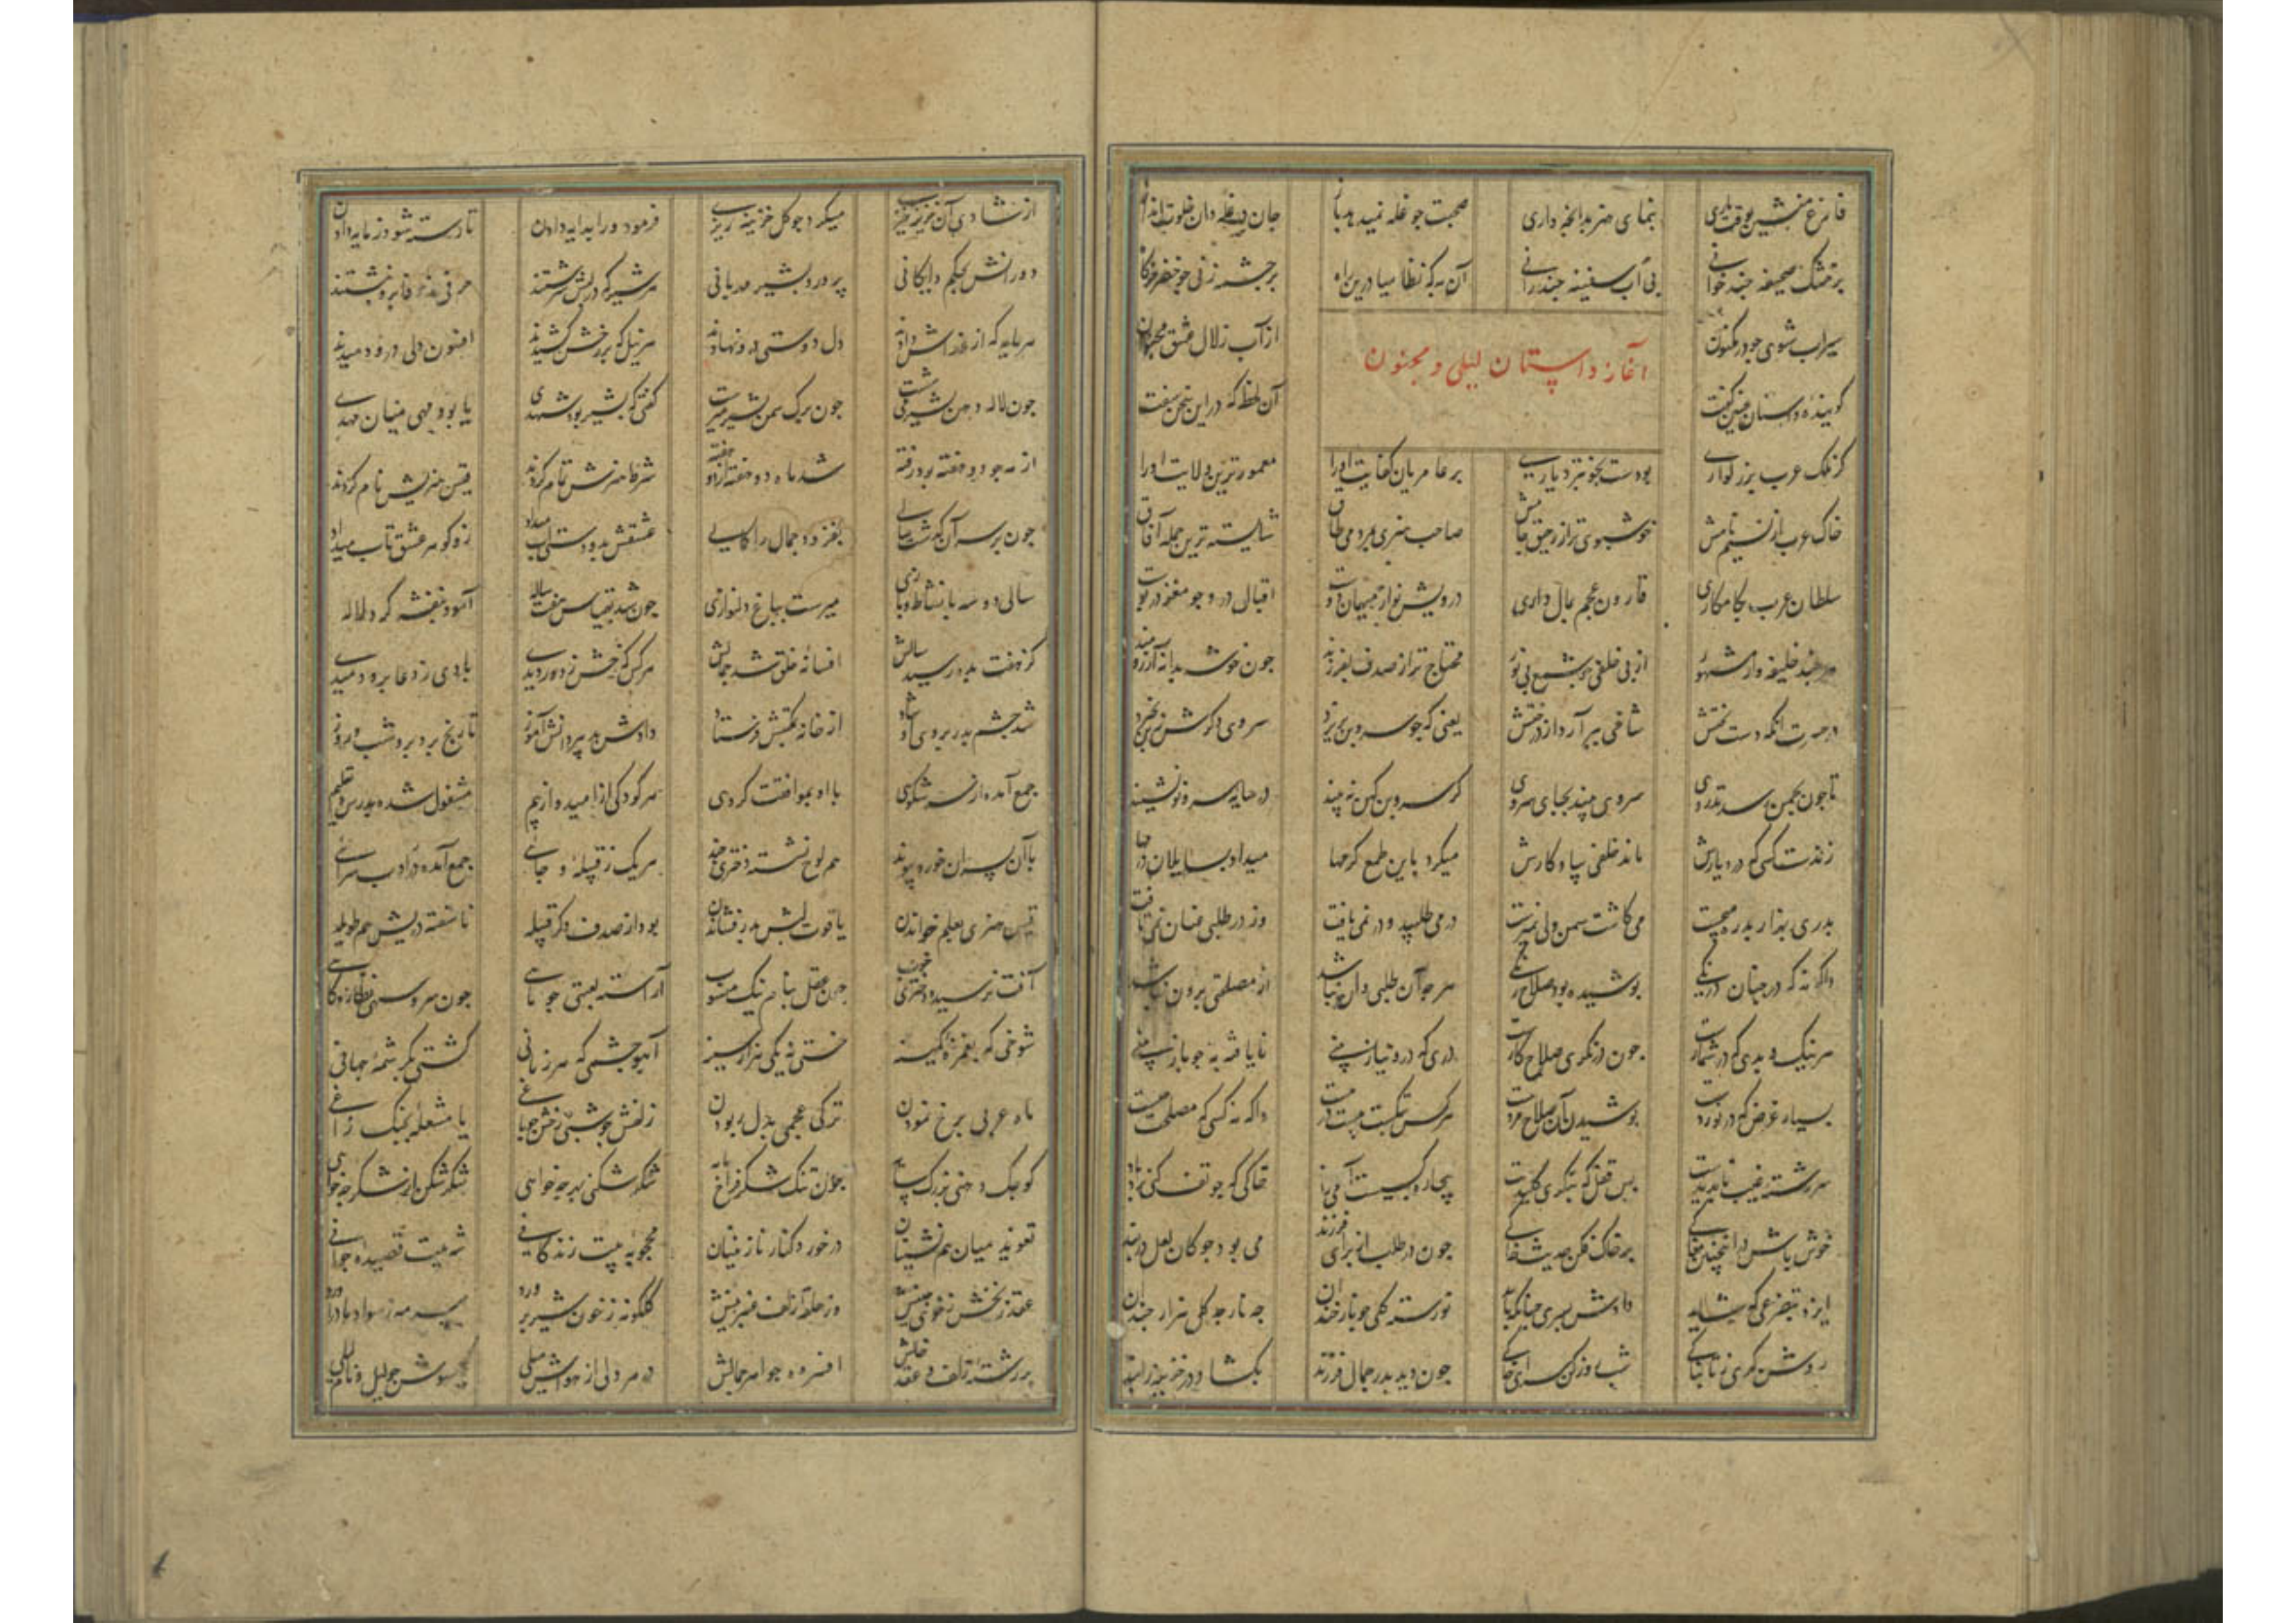 فارغ منشین که وقت یاری بنمای هنر بدانچه داری صحبت جو غله نمیدهد باز جان در غله دان خلوت انداز
بر خشک صحیفه چند خوانی بی آب سفینه چند رانی آن به که نظامیا درین راه بر چشمه زنی جو خضر خرگاه
سیراب شوی جو در مکنون از آب زلال عشق مجنون
آغاز داستان لیلی و مجنون
گوینده داستان چنین گفت آن لحظه که در این سخن سفت
کز ملک عرب بزرکواری بودست بخوبتر دیاری بر عامریان کفایت او را معمورترین ولایت او را
خاک عرب از نسیم نامش خوشبوی تر از رحیق جامش صاحب هنری بمردمی طاق شایسته ترین جمله آفاق
سلطان عرب بکامکاری قارون عجم بمال داری درویش نواز و میهمان دوست اقبال درو جو مغز در پوست
هر چند خلیفه وار مشهور از بی خلفی جو شمع بی نور محتاج تر از صدف بفرزند جون خوشه بدانه آرزومند
در حسرت آنکه دست بختش شاخی بر آرد از درختش یعنی که جو سرو بن بریزد سروی دکرش ز بن بخیزد
تا جون بچمن رسد تذروی سروی بیند بجای سروی کر سرو بن کهن نه بیند در سایه سرو نو نشیند
زندست کسی که در دیارش ماند خلفی بیادکارش میکرد باین طمع کرمها میداد بسایلان درمها
بدری بهزار بدره میجست می کاشت سمن ولی نمیرست در می طلبید و در نمی یافت وز در طلبی عنان نمی تافت
واکه نه که در جهان درنکی پوشیده بود صلاح رنکی هر جه آن طلبی و آن نباشد از مصلحتی برون نباشد
هر نیک و بدی که در شمارست جون در نکری صلاح کارست دری که درو نیاز بینی نایافته به جو باز بینی
بسیار غرض که در نوردست پوشیدن آن صلاح مردست هر کس بتکیست بیست در بیست واکه نه کسی که مصلحت چیست
سررشته غیب ناپدیدست بس قفل که بنکری کلیدست
خوش باش
جون در طلب از برای فرزند می بود جو کان لعل دربند
ایزد بتضرعی که شاید دادش پسری چنانکه باید نو رسته کلی جو نار خندان جه نار جه کل هزار چندان
روشن کهری ز تابناکی شب روز کن سرای خاکی جون دید پدر جمال فرزند بکشاد در خزینه را بند
از شادی آن خزینه خیزی میکرد جو کل خزینه ریزی فرمود ورا بدایه دادن تا رسته شود ز مایه دادن
دورانش بحکم دایکانی پرورد بشیر مهربانی هر شیر که در لبش سرشتند حرفی ز وفا برو نبشتند
هر مایه که از غذاش دادند دل دوستی درو نهادند هر نیل که بر رخش کشیدند افسون دلی درو دمیدند
جون لاله دهن بشیر می شست جون برک سمن بشیر میرست کفتی که بشیر بود شهدی یا بود مهی میان مهدی
از مه جو دو هفته بود رفته شد ماه دو هفته از دو هفته شرط هنرش تمام کردند قیس هنریش نام کردند
جون بر سر آن کذشت سالی بفزود جمال را کمالی عشقش بدو دستی آب میداد زو کوهر عشق تاب میداد
سالی دو سه با نشاط و بازی میرست بباغ دلنوازی جون شد بقیاس هفت ساله آمود بنفشه کرد لاله
کز هفت بده رسید سالش افسانه خلق شد جمالش هر کس که رخش ز دور دیدی بادی ز دعا برو دمیدی
شد چشم پدر بروی او شاد از خانه بمکتبش فرستاد دادش بدبیر دانش آموز تا رنج برد برو شب و روز
جمع آمده از سر شکوهی با او بموافقت کروهی هر کودکی از امید و از بیم مشغول شده بدرس و تعلیم
با آن پسران خورد پیوند هم لوح نشسته دختری چند هر یک ز قبیله و جایی جمع آمده در ادب سرایی
قیس هنری بعلم خواندن یاقوت لبش بدر فشاندن بود از صدف دکر قبیله ناسفته دریش هم طویله
آفت نرسیده دختری خوب جون عقل بنام نیک منسوب آراسته لعبتی جو ماهی جون سرو سهی نظاره کاهی
شوخی که بغمزه کمینه خستی نه یکی هزار سینه آهو چشمی که هر زمانی کشتی بکرشمه جهانی
ماه عربی برخ نمودن ترک عجمی بدل ربودن زلفش جو شبی رخش جو باغی یا مشعله بچنک زاغی
کوجک دهنی بزرک سایه جون تنک شکر فراخ مایه شکر شکنی بهر جه خواهی
تعویذ میان هم نشینان درخورد کنار نازنینان محجوبه بیت زندکانی شه بیت قصیده جوانی
عقد زنخش ز خوی جبینش وز حلقه زلف عنبرینش کلکونه ز خون شیر پرورد سرمه ز سواد مادر آورد
بر رشته زلف و عقد خالش افزوده جواهر جمالش در هر دلی از هواش میلی کیسوش جو لیل و نام لیلی